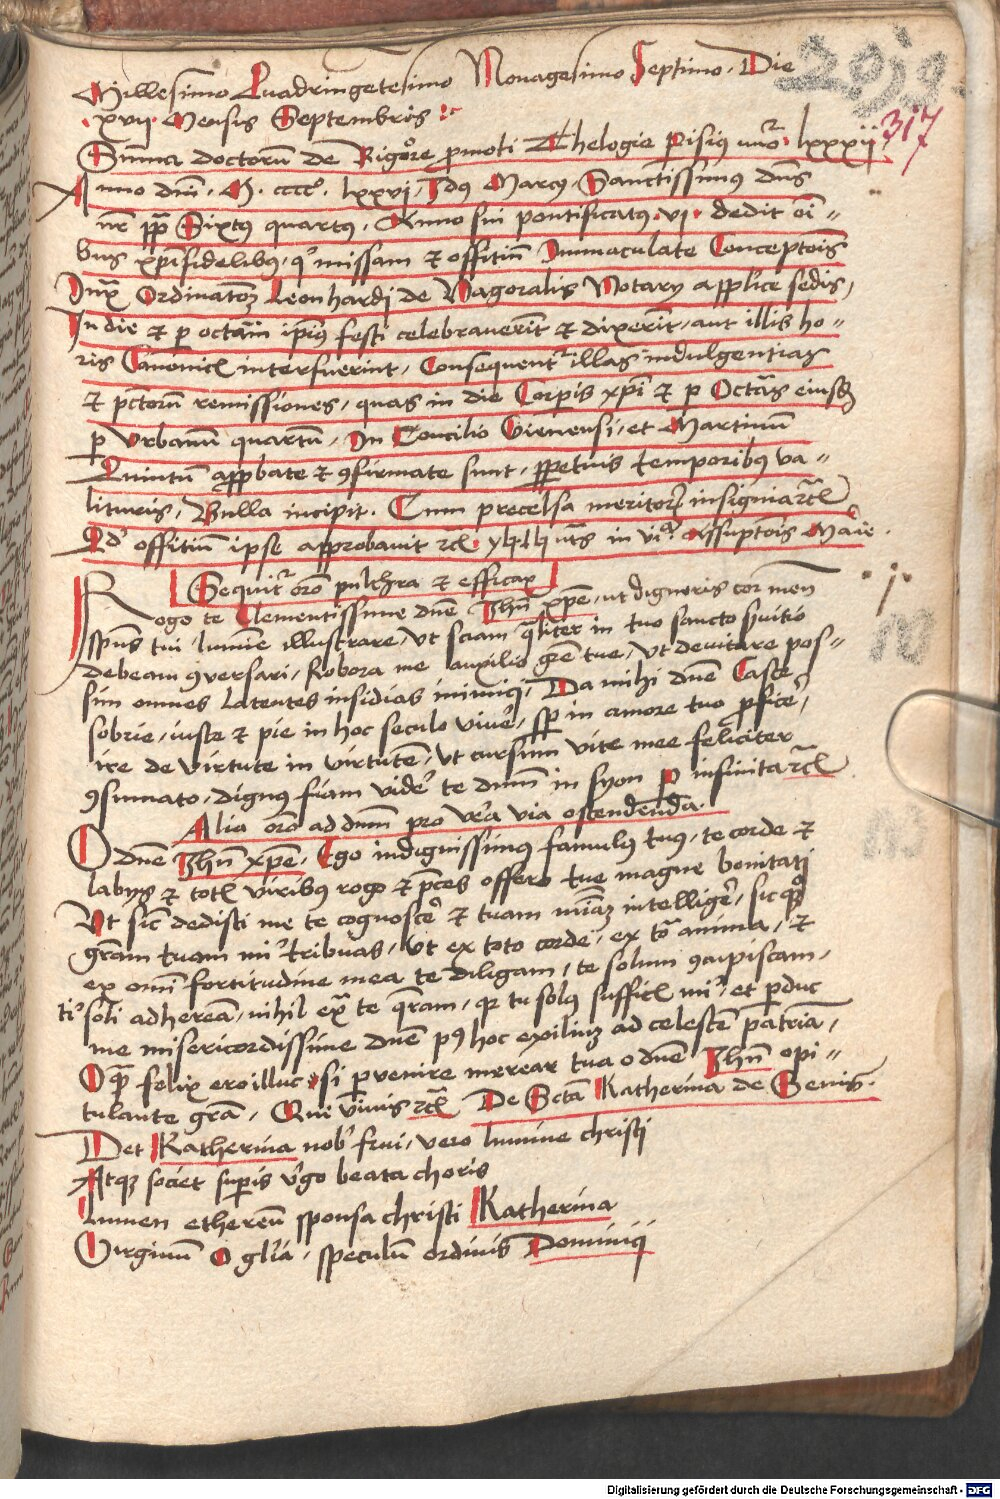 Millesimo Quadringetesimo Nonagesimo Septimo. Die
.xvij. Mensis Septembris :
317
Sum̄a doctorū de Rigore p̄moti Thelogie Parisiꝯ lxxxij
Anno dn̄i. M. cccc°. lxxvj, Idꝯ Marcij, Sanctissimꝯ dn̄s
nr̄ pp̄ Sixtꝯ quartꝯ. Anno sui pontificatꝯ. vj. dedit oī=
bus xp̄ifidelibꝯ, qͥ missam et offitiū Immaculate Conceptōis
Iuxͣ Ordinatōꝫ Leonhardi de Nogoralis Notarij ap̄lice sedis,
In die et p octauā ip̄iꝯ festi celebrauerīt et dixerīt, aut illis ho=
ris Canonicꝭ interfuerint, Consequentͬ illas indulgentias
et pctorū remissiones, quas in die Corpis xp̄i et p Octās eiusdꝫ
p Vrbanū quartū, In Concilio Vienensi, et Martinū
Quintū appbate et ꝯfirmate sunt, ppetuis temporibꝯ va=
lituris, Bulla incipit. Cum precelsa meritorꝫ insignia rcꝭ
Qd' offitiū ipse approbauit rcꝭ in viͣ Assuptōis Marie.
Sequitͬ orō pulchra et efficax
Rogo te Clementissime dn̄e Ihū xp̄e, ut digneris cor meū
sp̄us tui lumīe illustrare, Vt sciam qͣliter in tuo sancto suitio
debeam ꝯversari, Robora me auxilio grē tue, Vt deuitare pos=
sim omnes latentes insidias inimici, Da mihi dn̄e Caste
sobrie, iuste et pie in hoc seculo viuē, sp̄ in amore tuo pficē,
ire de virtute in virtutē, Vt cursum vite mee feliciter
ꝯsumato, dignꝯ fiam vidē te deum in syon p infinita rcꝭ
Alia orō ad deum pro vera via ostendenda.
O dn̄e Ihū xp̄e, Ego indignissimꝯ famulꝯ tuꝯ, te corde et
labijs et totꝭ viribꝯ rogo et pces offero tue magne bonitati
Vt sic dedisti me te cognoscē et tuam miāꝫ intelligē, sic qꝫ
gram tuam mͥ tribuas, Vt ex toto corde, ex tō anima, et
ex omī fortitudine mea te diligam, te solum ꝯcupiscam,
tͥ soli adhereā, nihil exͣ te qram, qꝫ tu solꝯ sufficꝭ mͥ, et pduc
me misericordissime dn̄e pꝯ hoc exiliū ad celestē patriā,
O qͣ felix ero illuc si pvenire merear tua o dn̄e Ihū opi=
tulante grā. Qui viuis rcꝭ De Sctā Katherina de Senis.
Det Katherina nob' frui, vero lumine christi
Atqꝫ societ supis vͥgo beata choris
Lumen ethereū sponsa christi Katherina
Virginum O glīa, speculū ordinis Dominici
Digitalisierung gefördert durch die Deutsche Forschungsgemeinschaft - DFG